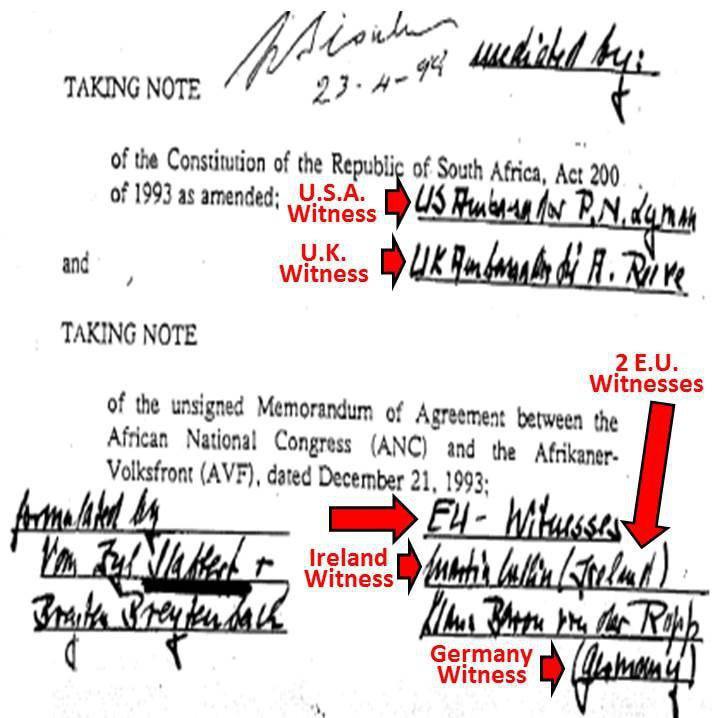 mediated by:
23-4-94
TAKING NOTE
of the Constitution of the Republic of South Africa, Act 200
of 1993 as amended;
U.S.A.
Witness
US Ambassador P.N. Lyman
U.K.
Witness
UK Ambassador Sir A. Reeve
and
TAKING NOTE
2 E.U.
Witnesses
of the unsigned Memorandum of Agreement between the
African National Congress (ANC) and the Afrikaner-
Volksfront (AVF), dated December 21, 1993;
formulated by
Van Zyl Slabbert +
Breyten Breytenbach
EU - Witnesses
Ireland
Witness
Martin (Ireland)
Klaus Baron von der Ropp
Germany
Witness
(Germany)